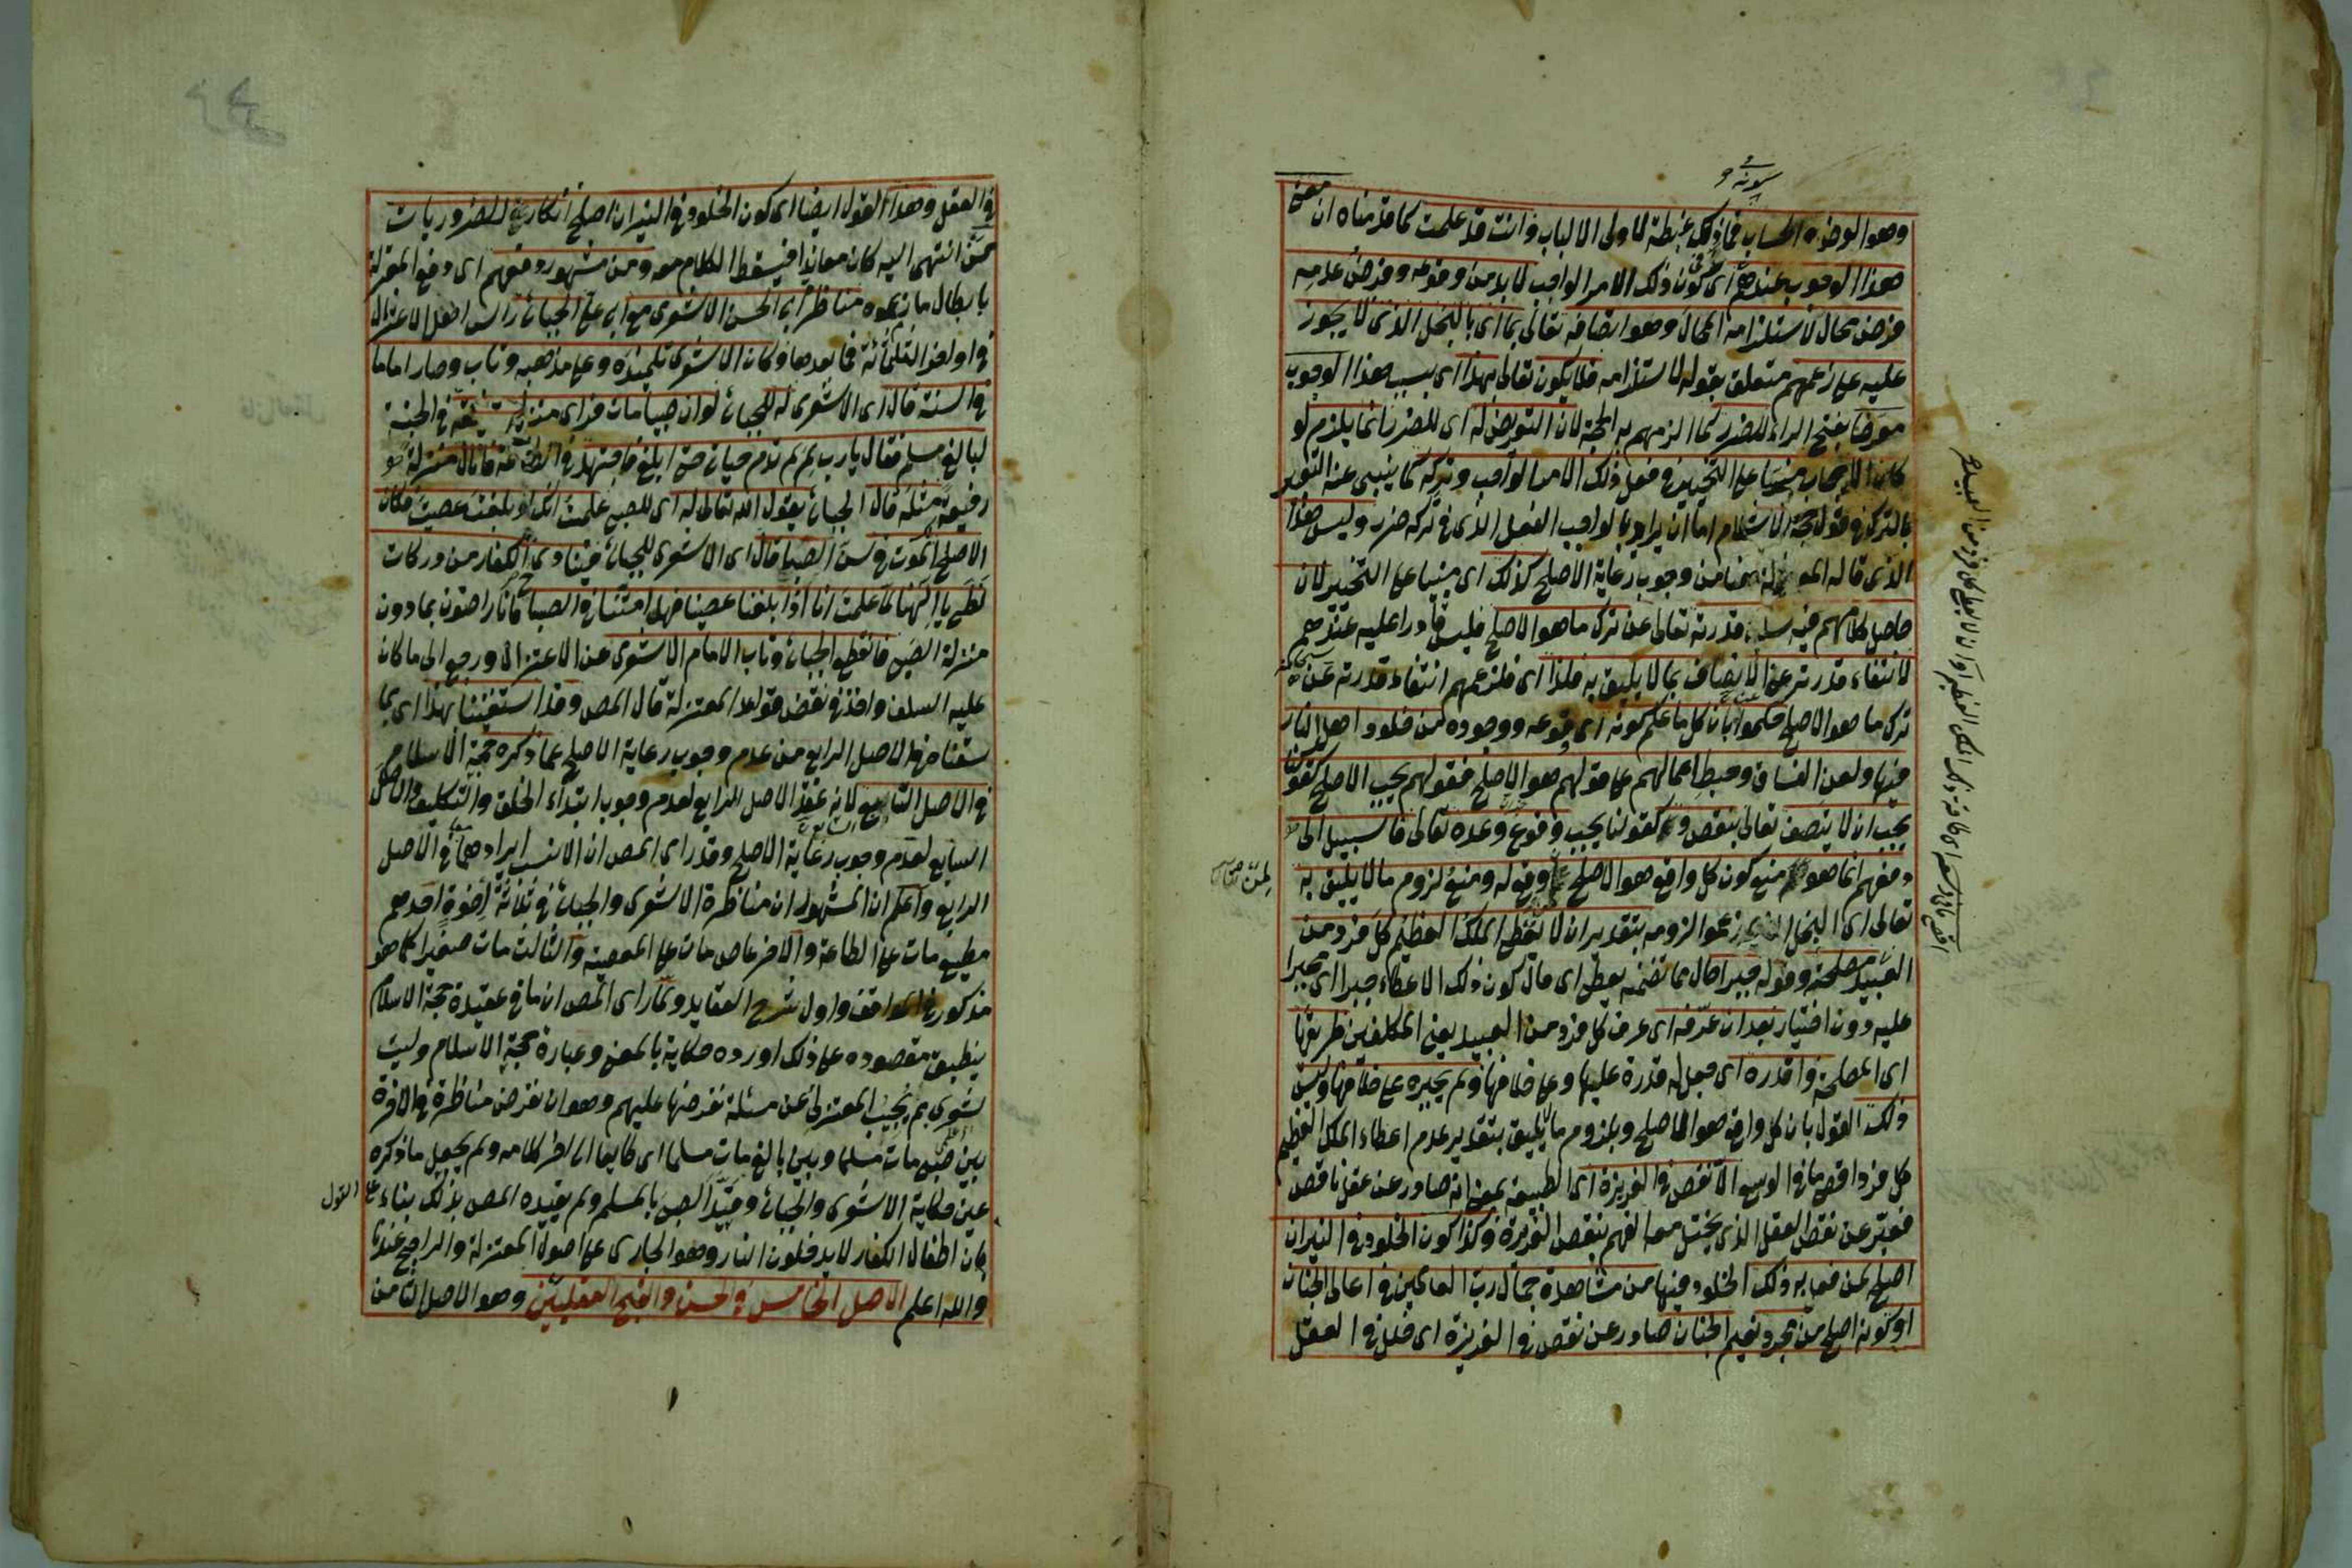 وهو الوضه الحساب فما ذلك غبطة لاولى الالباب وانت قد علمت كما قدمناه ان معنى
هذا الوجوب عندهم اى كون ذلك الامر الواجب لا بد من وقوعه وفرض عدمه
فرض محال لاستلزامه المحال وهو اتصافه تعالى بما اى بالبخل الذى لا يجوز
عليه على زعمهم متعلق بقوله لاستلزامه فلا يكون تعالى بهذا اى بسبب هذا الوجوب
معرضا بفتح الراء للضرر كما الزمهم به الحجة لان التعريض له اى للضرر انما يلزم لو
كان الايجاب مبنيا على التخيير فى فعل ذلك الامر الواجب وتركه كما ينبى عنه التعبير
بالترك فى قول حجة الاسلام اما ان يراد بالواجب الفعل الذى فى تركه ضرر وليس هذا
الذى قاله المعتزلة هنا من وجوب رعاية الاصلح كذلك اى مبنيا على التخيير لان
حاصل كلامهم فيه سلب قدرته تعالى عن ترك ما هو الاصلح فليس قادرا عليه عندهم
لانتفاء قدرته عن الاتصاف بما لا يليق به فلذا اى فلزعمهم انتفاء قدرته عن
ترك ما هو الاصلح حكموا بان كل ما علم كونه اى وقوعه ووجوده من خلود اهل النار
فيها ولعن الفساق وحبط اعمالهم على قولهم هو الاصلح فقولهم يجب الاصلح كقولنا
يجب ان لا يتصف تعالى بنقص وكقولنا يجب وقوع وعده تعالى فالسبيل الى
دفعهم انما هو منع كون كل واقع هو الاصلح وقوله ومنع لزوم ما لا يليق به
تعالى اى البخل الذى زعموا لزومه بتقدير ان لا يعطى الملك العظيم كل فرد من
العبيد مصلحة وقوله جبرا حال مما تضمنه يعطى اى حال كون ذلك الاعطاء جبرا اى مجبرا
عليه دون اختيار بعد ان عرفه اى عرف كل فرد من العبيد يعنى المكلفين طريقها
اى المصلحة واقدره اى جعل له قدرة عليها وعلى خلافها ولم يجبره على خلافها وليس
ذلك القول بان كل واقع هو الاصلح وبلزوم ما لا يليق بتقدير عدم اعطاء الملك العظيم
كل فرد اقصى ما فى الوسع الا لنقص فى الغريزة اى الطبيعة بمعنى انه صادر عن عقل ناقص
فعبر عن نقص العقل الذى يختل معه الفهم بنقص الغريزة وكذا كون الخلود فى النيران
اصلح لمن فعل به ذلك الخلود فيها من مشاهدة جمال رب العالمين فى اعالى الجنان
او كونه اصلح من مجرد نعيم الجنان صادر عن نقص فى الغريزة اى خلل فى العقل
فى العقل وهذا القول ايضا اى كون الخلود فى النيران اصلح انكار للضروريات
فمن انتهى اليه كان معاندا فيسقط الكلام معه ومن مشهور دفعهم اى دفع المعتزلة
بابطال ما زعموه مناظرة ابى الحسن الاشعرى مع ابى على الجبائى راس اهل الاعتزال
فى اوائل الثلثمائة فما بعدها وكان الاشعرى تلميذه وعلى مذهبه وتاب وصار اماما
فى السنة قال اى الاشعرى له للجبائى لو ان صبيا مات فراى منزلة رفيعة فى الجنة
لبالغ مسلم فقال يا رب لم لم تدم حياتى حتى ابلغ فاجتهد فى الطاعة فانال منزلة
رفيعة مثله قال الجبائى يقول الله تعالى له اى للصبى علمت انك لو بلغت عصيت فكان
الاصلح الموت فى سن الصبا قال اى الاشعرى للجبائى فينادى الكفار من دركات
لظى يا الهنا لما علمت انا اذا بلغنا عصينا فهلا امتنا فى الصبا فانا راضون بما دون
منزلة الصبى فانقطع الجبائى وتاب الامام الاشعرى عن الاعتزال ورجع الى ما كان
عليه السلف واخذ فى نقض قواعد المعتزلة قال المص وقد استغنينا بهذا اى بما
سقناه فى الاصل الرابع من عدم وجوب رعاية الاصلح عما ذكره حجة الاسلام
فى الاصل السابع لانه عقد الاصل الرابع لعدم وجوب ابتداء الخلق والتكليف والاصل
السابع لعدم وجوب رعاية الاصلح وقد راى المص ان الانسب ايرادهما فى الاصل
الرابع واعلم ان المشهور ان مناظرة الاشعرى والجبائى فى ثلاثة اخوة احدهم
مطيع مات على الطاعة والاخر عاص مات على المعصية والثالث مات صغيرا كما هو
مذكور فى المواقف واول شرح العقايد ولما راى المص ان ما فى عقيدة حجة الاسلام
ينطبق مقصوده على ذلك اورده حكاية بالمعنى وعبارة حجة الاسلام وليت
شعرى بم يجيب المعتزلى عن مسئلة نفرضها عليهم وهو ان نفرض مناظرة فى الاخرة
بين صبى مات مسلما وبين بالغ مات مسلما اى طايعا الى اخر كلامه ولم يجعل ما ذكره
عين حكاية الاشعرى والجبائى وقيد الصبى بالمسلم ولم يقيده المص بذلك بناء على القول
بان اطفال الكفار لا يدخلون النار وهو الجارى على اصول المعتزلة والراجح عندنا
والله اعلم الاصل الخامس فى الحسن والقبح العقليين وهو الاصل الثامن